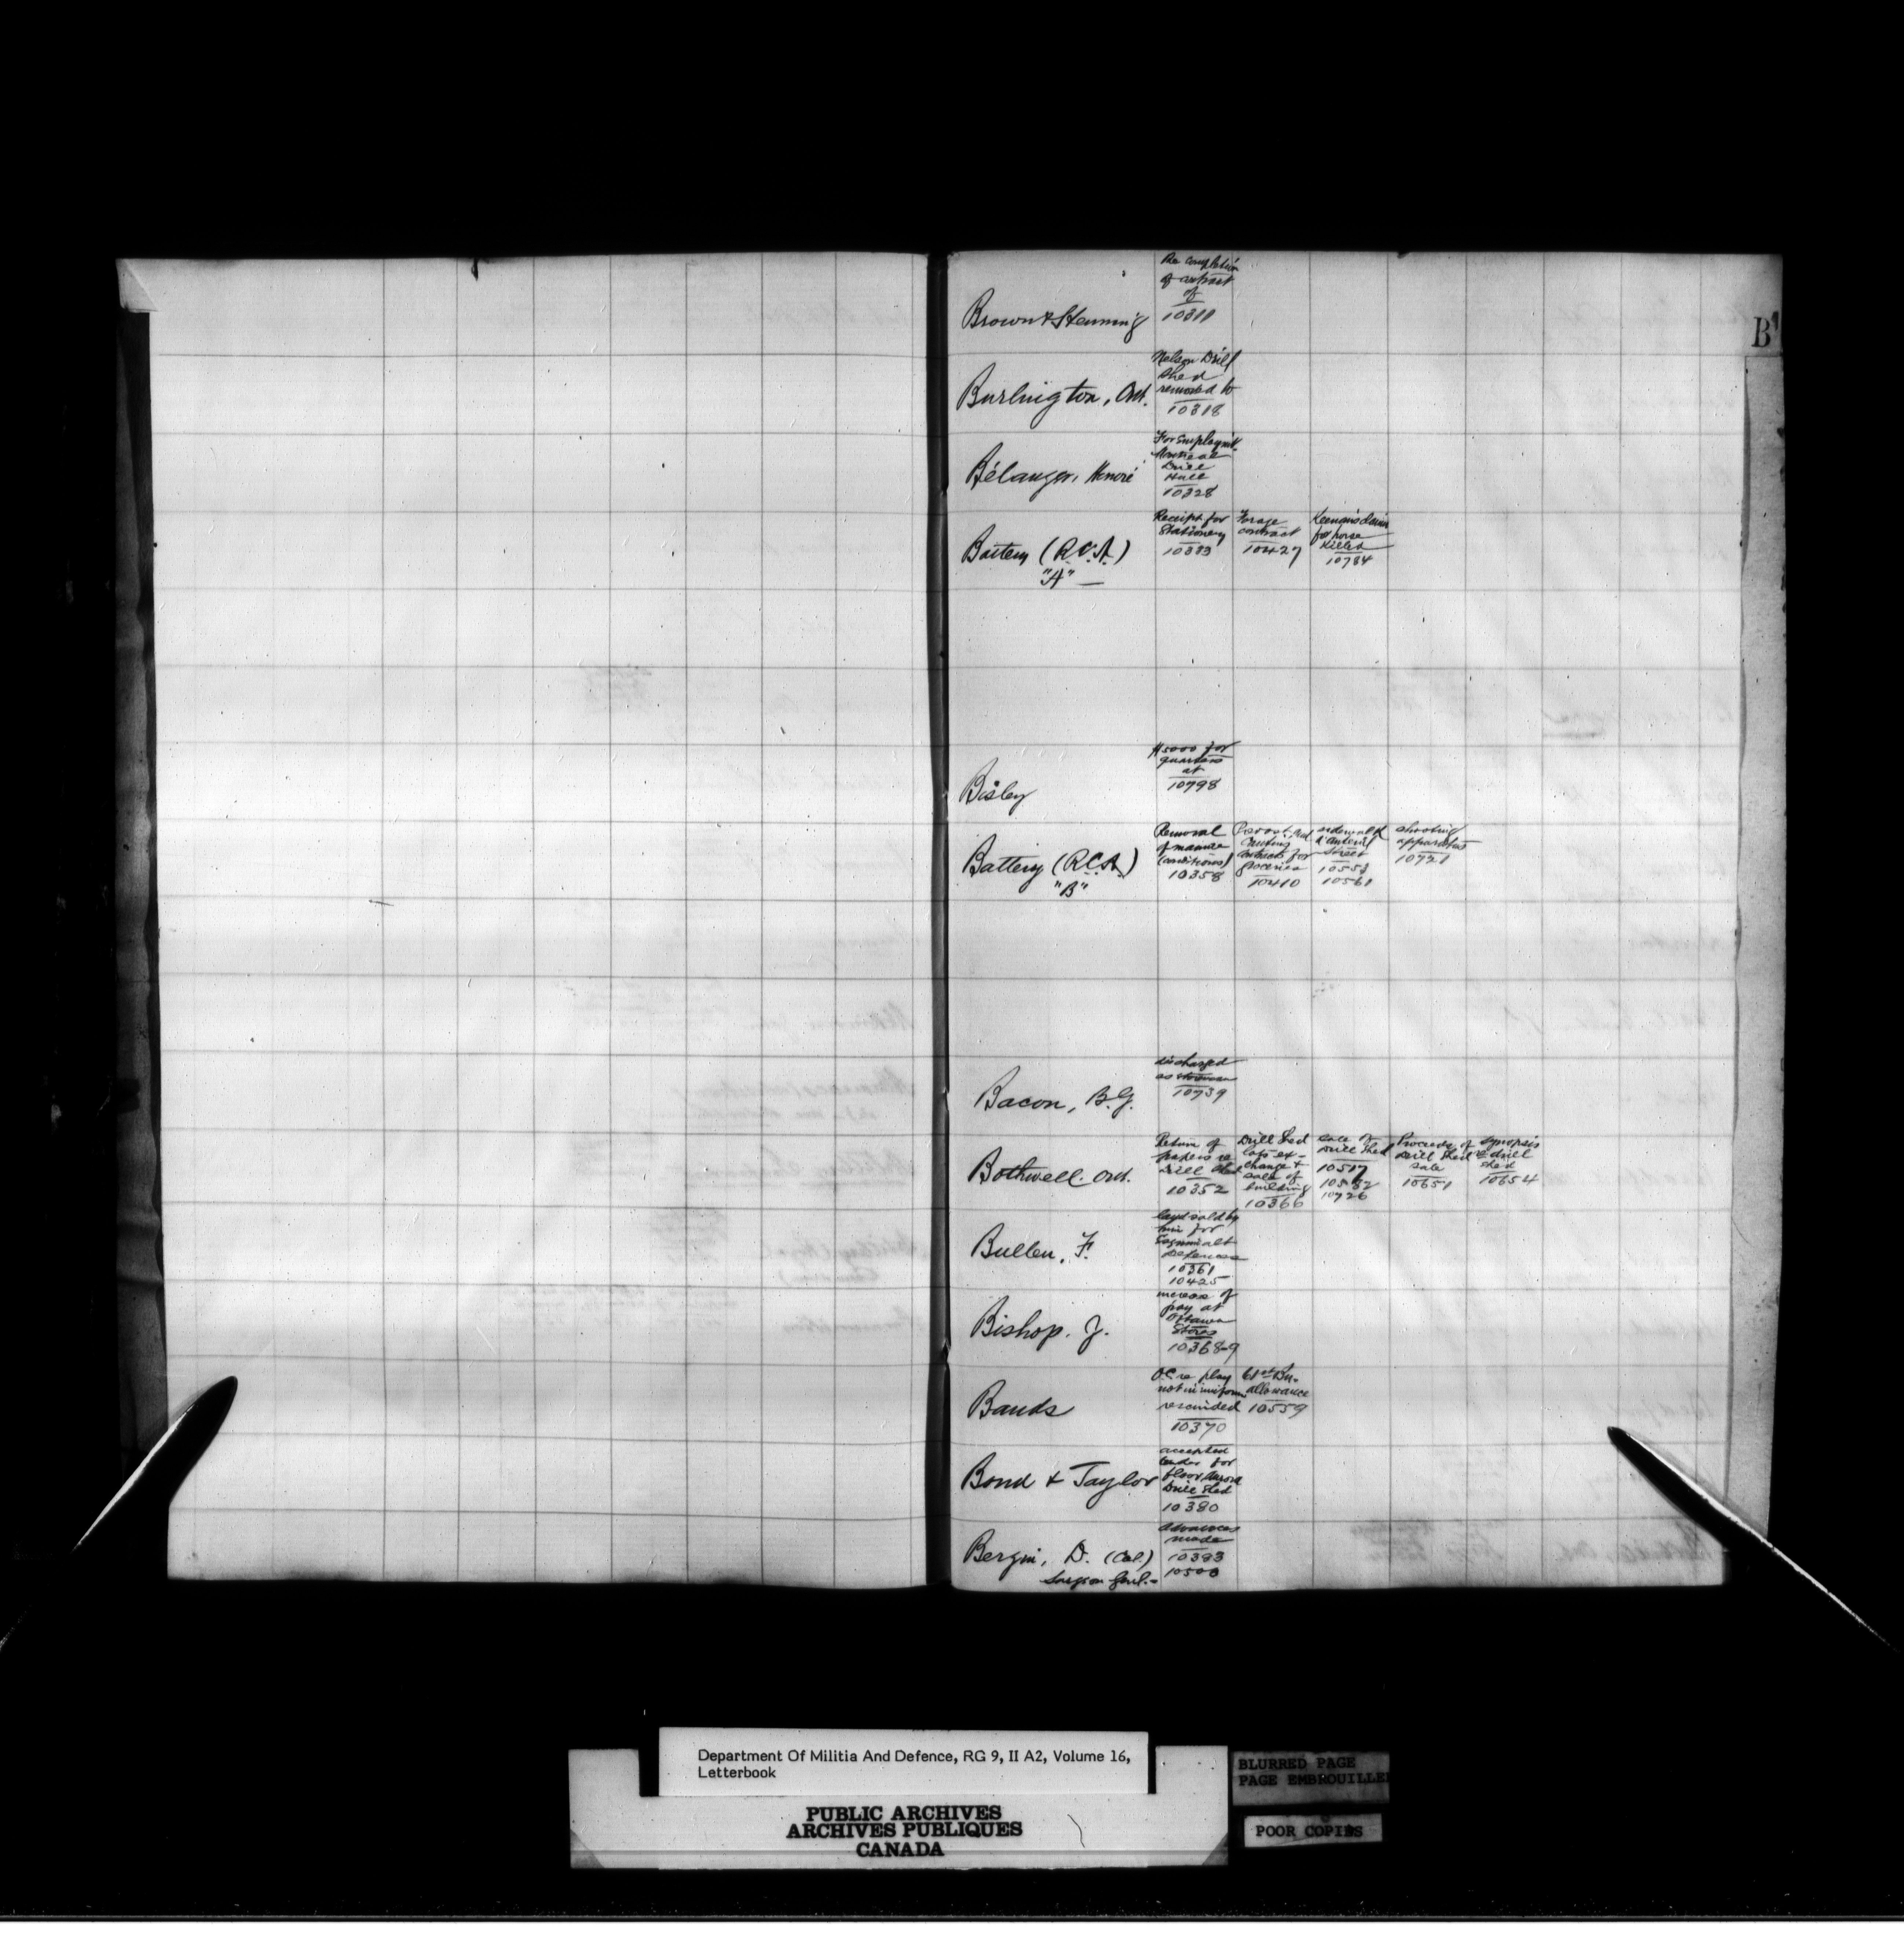 B
Brown & Stemming
Re completion
of contract
of
10311
Burlington, Ont.
Nelson Drill
Shed
removed to
10318
Bélanger, Honoré
For employm't
Montreal
Drill
Hall
10328
Battery (R.C.A.)
"A" —
Receipt for
Stationery
10333
Forage
contract
10427
Keenan's claim
for horse
killed
10784
Bisley
$5000 for
quarters
at
10798
Battery (R.C.A.)
"B"
Removal
of manure
(conditions)
10358
contracts for
Groceries
10410
sidewalk
d'Auteuil
Street
10553
10561
shooting
apparatus
10721
Bacon, B.G.
discharged
as storeman
10739
Bothwell. Ont.
Return of
papers re
Drill Shed
10352
Drill Shed
lots ex-
change &
sale of
building
10366
Sale of
Drill Shed
10517
10582
10726
Proceeds of
Drill Shed
sale
10651
Synopsis
re drill
shed
10654
Bullen, F.
land sold by
him for
Esquimalt
Defences
10361
10425
Bishop. J.
increase of
pay at
Ottawa
Stores
10368-9
Bands
O.C. re play
not in uniform
rescinded
10370
61st Bn.
allowance
10559
Bond & Taylor
accepted
tender for
floor, Aurora
Drill Shed
10380
Bergin, D. (Col.)
Surgeon Genl.-
Advances
made
10383
10500
Department Of Militia And Defence, RG 9, II A2, Volume 16,
Letterbook
PUBLIC ARCHIVES
ARCHIVES PUBLIQUES
CANADA
BLURRED PAGE
PAGE EMBROUILLEE
POOR COPIES